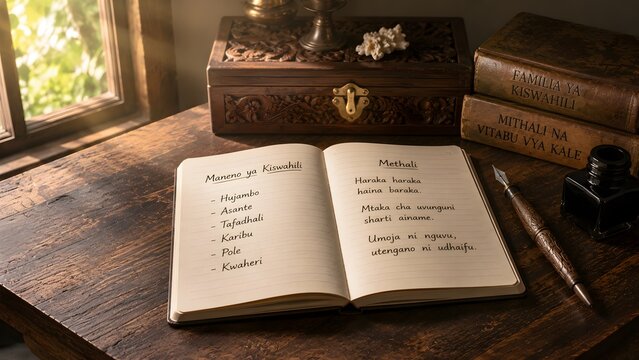 Maneno ya Kiswahili
- Hujambo
- Asante
- Tafadhali
- Karibu
- Pole
- Kwaheri
Methali
Haraka haraka
haina baraka.
Mtaka cha uvunguni
sharti ainame.
Umoja ni nguvu,
utengano ni udhaifu.
FAMILIA YA
KISWAHILI
MITHALI NA
VITABU VYA KALE